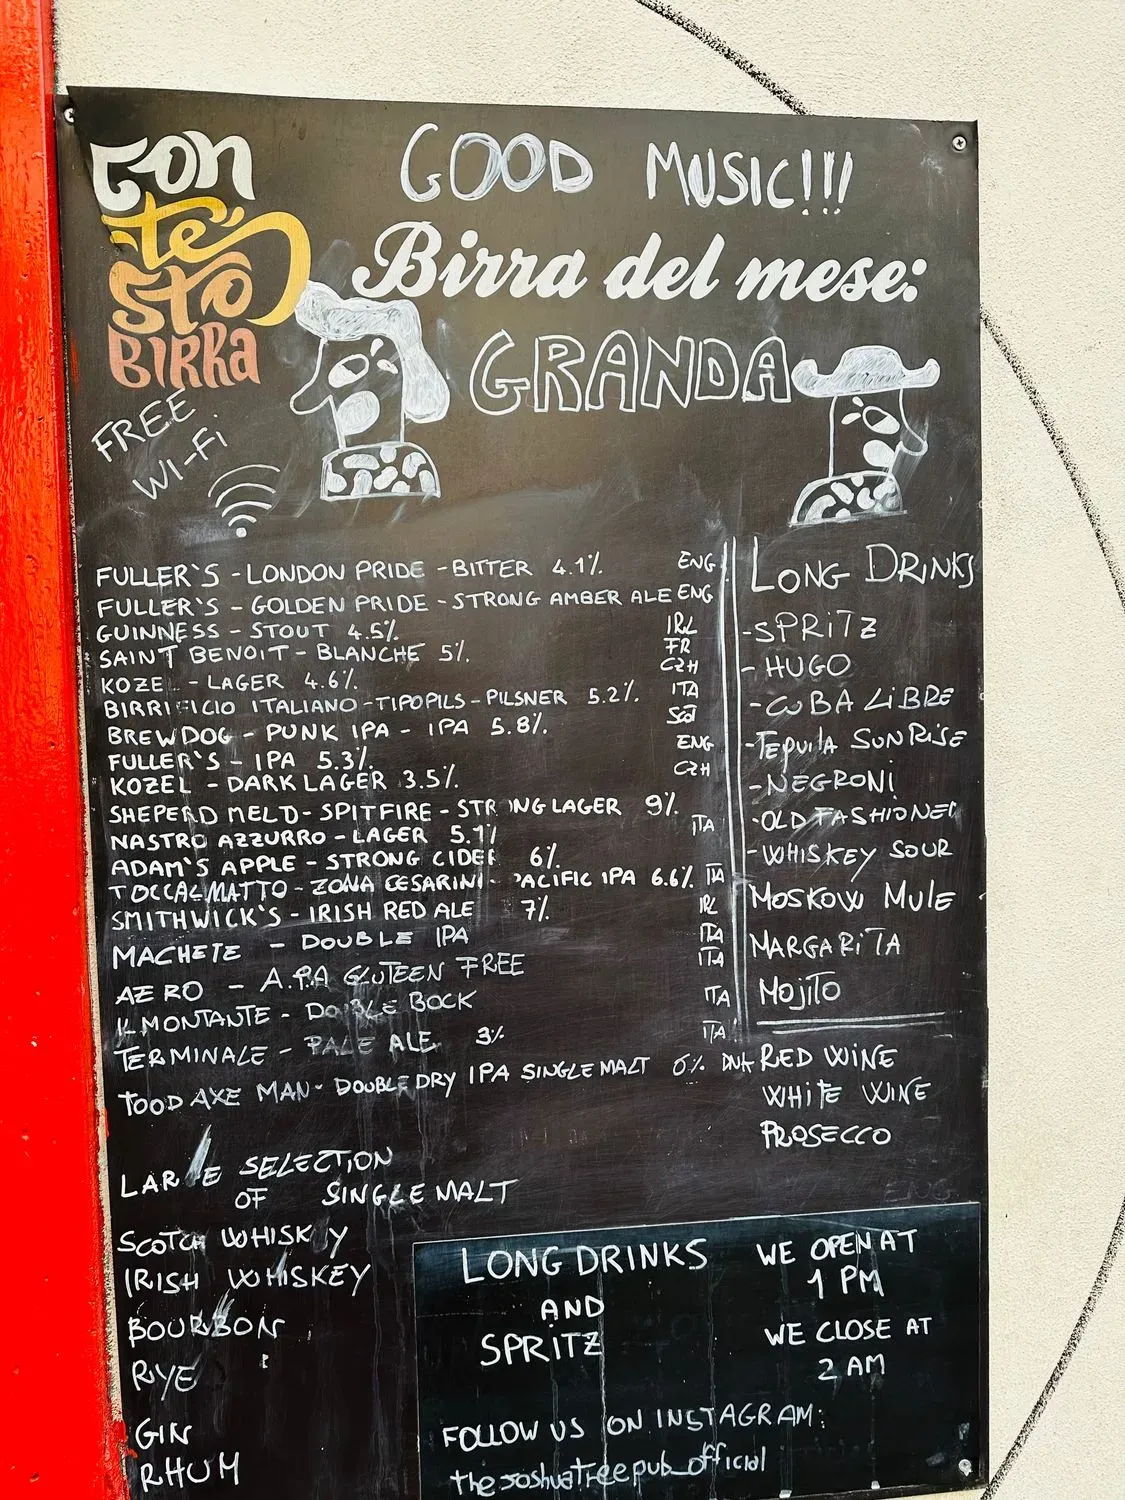 Con
te
sto
BIRRa
GOOD MUSIC!!!
Birra del mese:
GRANDA
FREE
WI-Fi
FULLER'S - LONDON PRIDE - BITTER 4.1% ENG
FULLER'S - GOLDEN PRIDE - STRONG AMBER ALE ENG
GUINNESS - STOUT 4.5% IRL
SAINT BENOIT - BLANCHE 5% FR
KOZEL - LAGER 4.6% CZH
BIRRIFICIO ITALIANO - TIPOPILS - PILSNER 5.2% ITA
BREWDOG - PUNK IPA - IPA 5.8% Scot
FULLER'S - IPA 5.3% ENG
KOZEL - DARK LAGER 3.5% CZH
SHEPERD MELD - SPITFIRE - STRONG LAGER 9%
NASTRO AZZURRO - LAGER 5.1% ITA
ADAM'S APPLE - STRONG CIDER 6%
TOCCALMATTO - ZONA CESARINI - PACIFIC IPA 6.6% ITA
SMITHWICK'S - IRISH RED ALE 7% IRL
MACHETE - DOUBLE IPA ITA
AZERO - A.P.A GLUTEEN FREE ITA
IL MONTANTE - DOUBLE BOCK ITA
TERMINALE - PALE ALE 3% ITA
TOOD AXE MAN - DOUBLE DRY IPA SINGLE MALT 6% DNK
LONG DRINKS
- SPRITZ
- HUGO
- CUBA LIBRE
- Tequila SUNRISE
- NEGRONI
- OLD FASHIONED
- WHISKEY SOUR
MOSKOW MULE
MARGARITA
MOJITO
RED WINE
WHITE WINE
PROSECCO
LARGE SELECTION
OF SINGLE MALT
SCOTCH WHISKY
IRISH WHISKEY
BOURBON
RYE
GIN
RHUM
LONG DRINKS
AND
SPRITZ
WE OPEN AT
1 PM
WE CLOSE AT
2 AM
FOLLOW US ON INSTAGRAM:
thejoshuatreepub_official